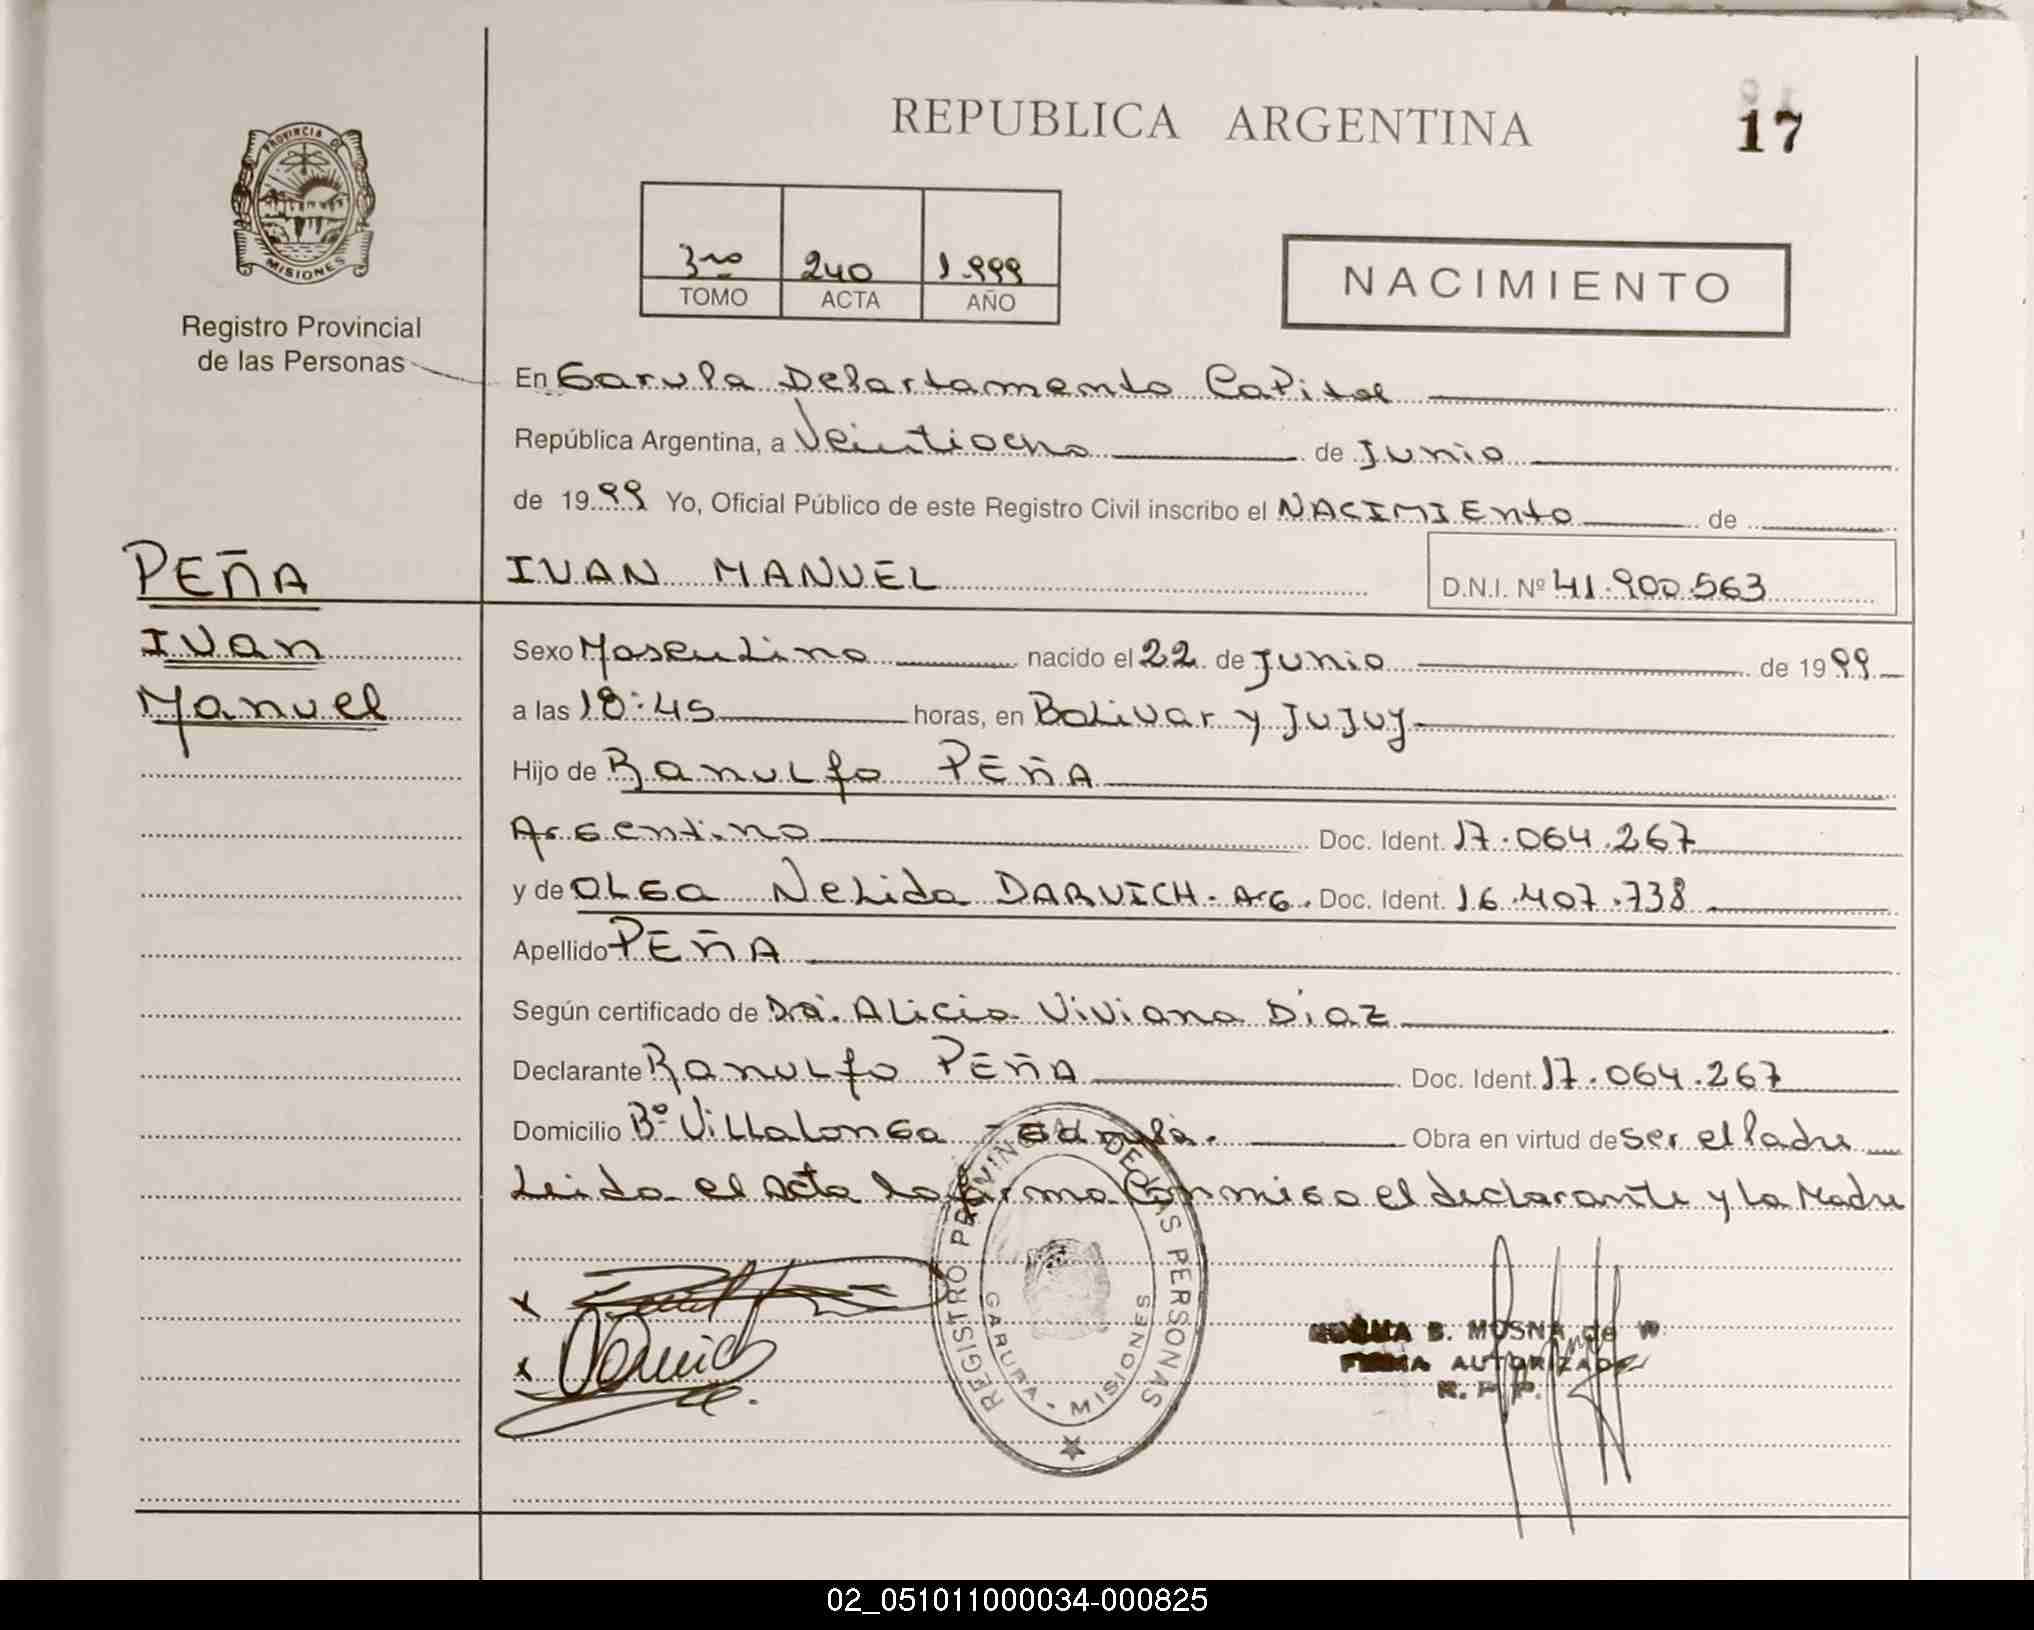 REPUBLICA ARGENTINA
17
PROVINCIA DE
MISIONES
Registro Provincial
de las Personas
3ro 240 1.999
TOMO ACTA AÑO
NACIMIENTO
En Garupa Departamento Capital
República Argentina, a Veintiocho de Junio
de 1999 Yo, Oficial Público de este Registro Civil inscribo el NACIMIEnto de
PEÑA
IVAN MANUEL
D.N.I. Nº 41.900.563
Ivan
Manuel
Sexo Masculino nacido el 22 de Junio de 1999
a las 18:45 horas, en Bolivar y Jujuy
Hijo de Ranulfo PEÑA
Argentino Doc. Ident. 17.064.267
y de OLGA Nelida DARVICH - Arg. Doc. Ident. 16.407.738
Apellido PEÑA
Según certificado de Dra. Alicia Viviana Diaz
Declarante Ranulfo PEÑA Doc. Ident. 17.064.267
Domicilio Bº Villalonga - Garupa. Obra en virtud de ser el Padre
Leida el acta la firma conmigo el declarante y la Madre
REGISTRO PROVINCIAL DE LAS PERSONAS
GARUPA - MISIONES
NORMA B. MOSNA de W
FIRMA AUTORIZADA
R. P. P.
02_051011000034-000825